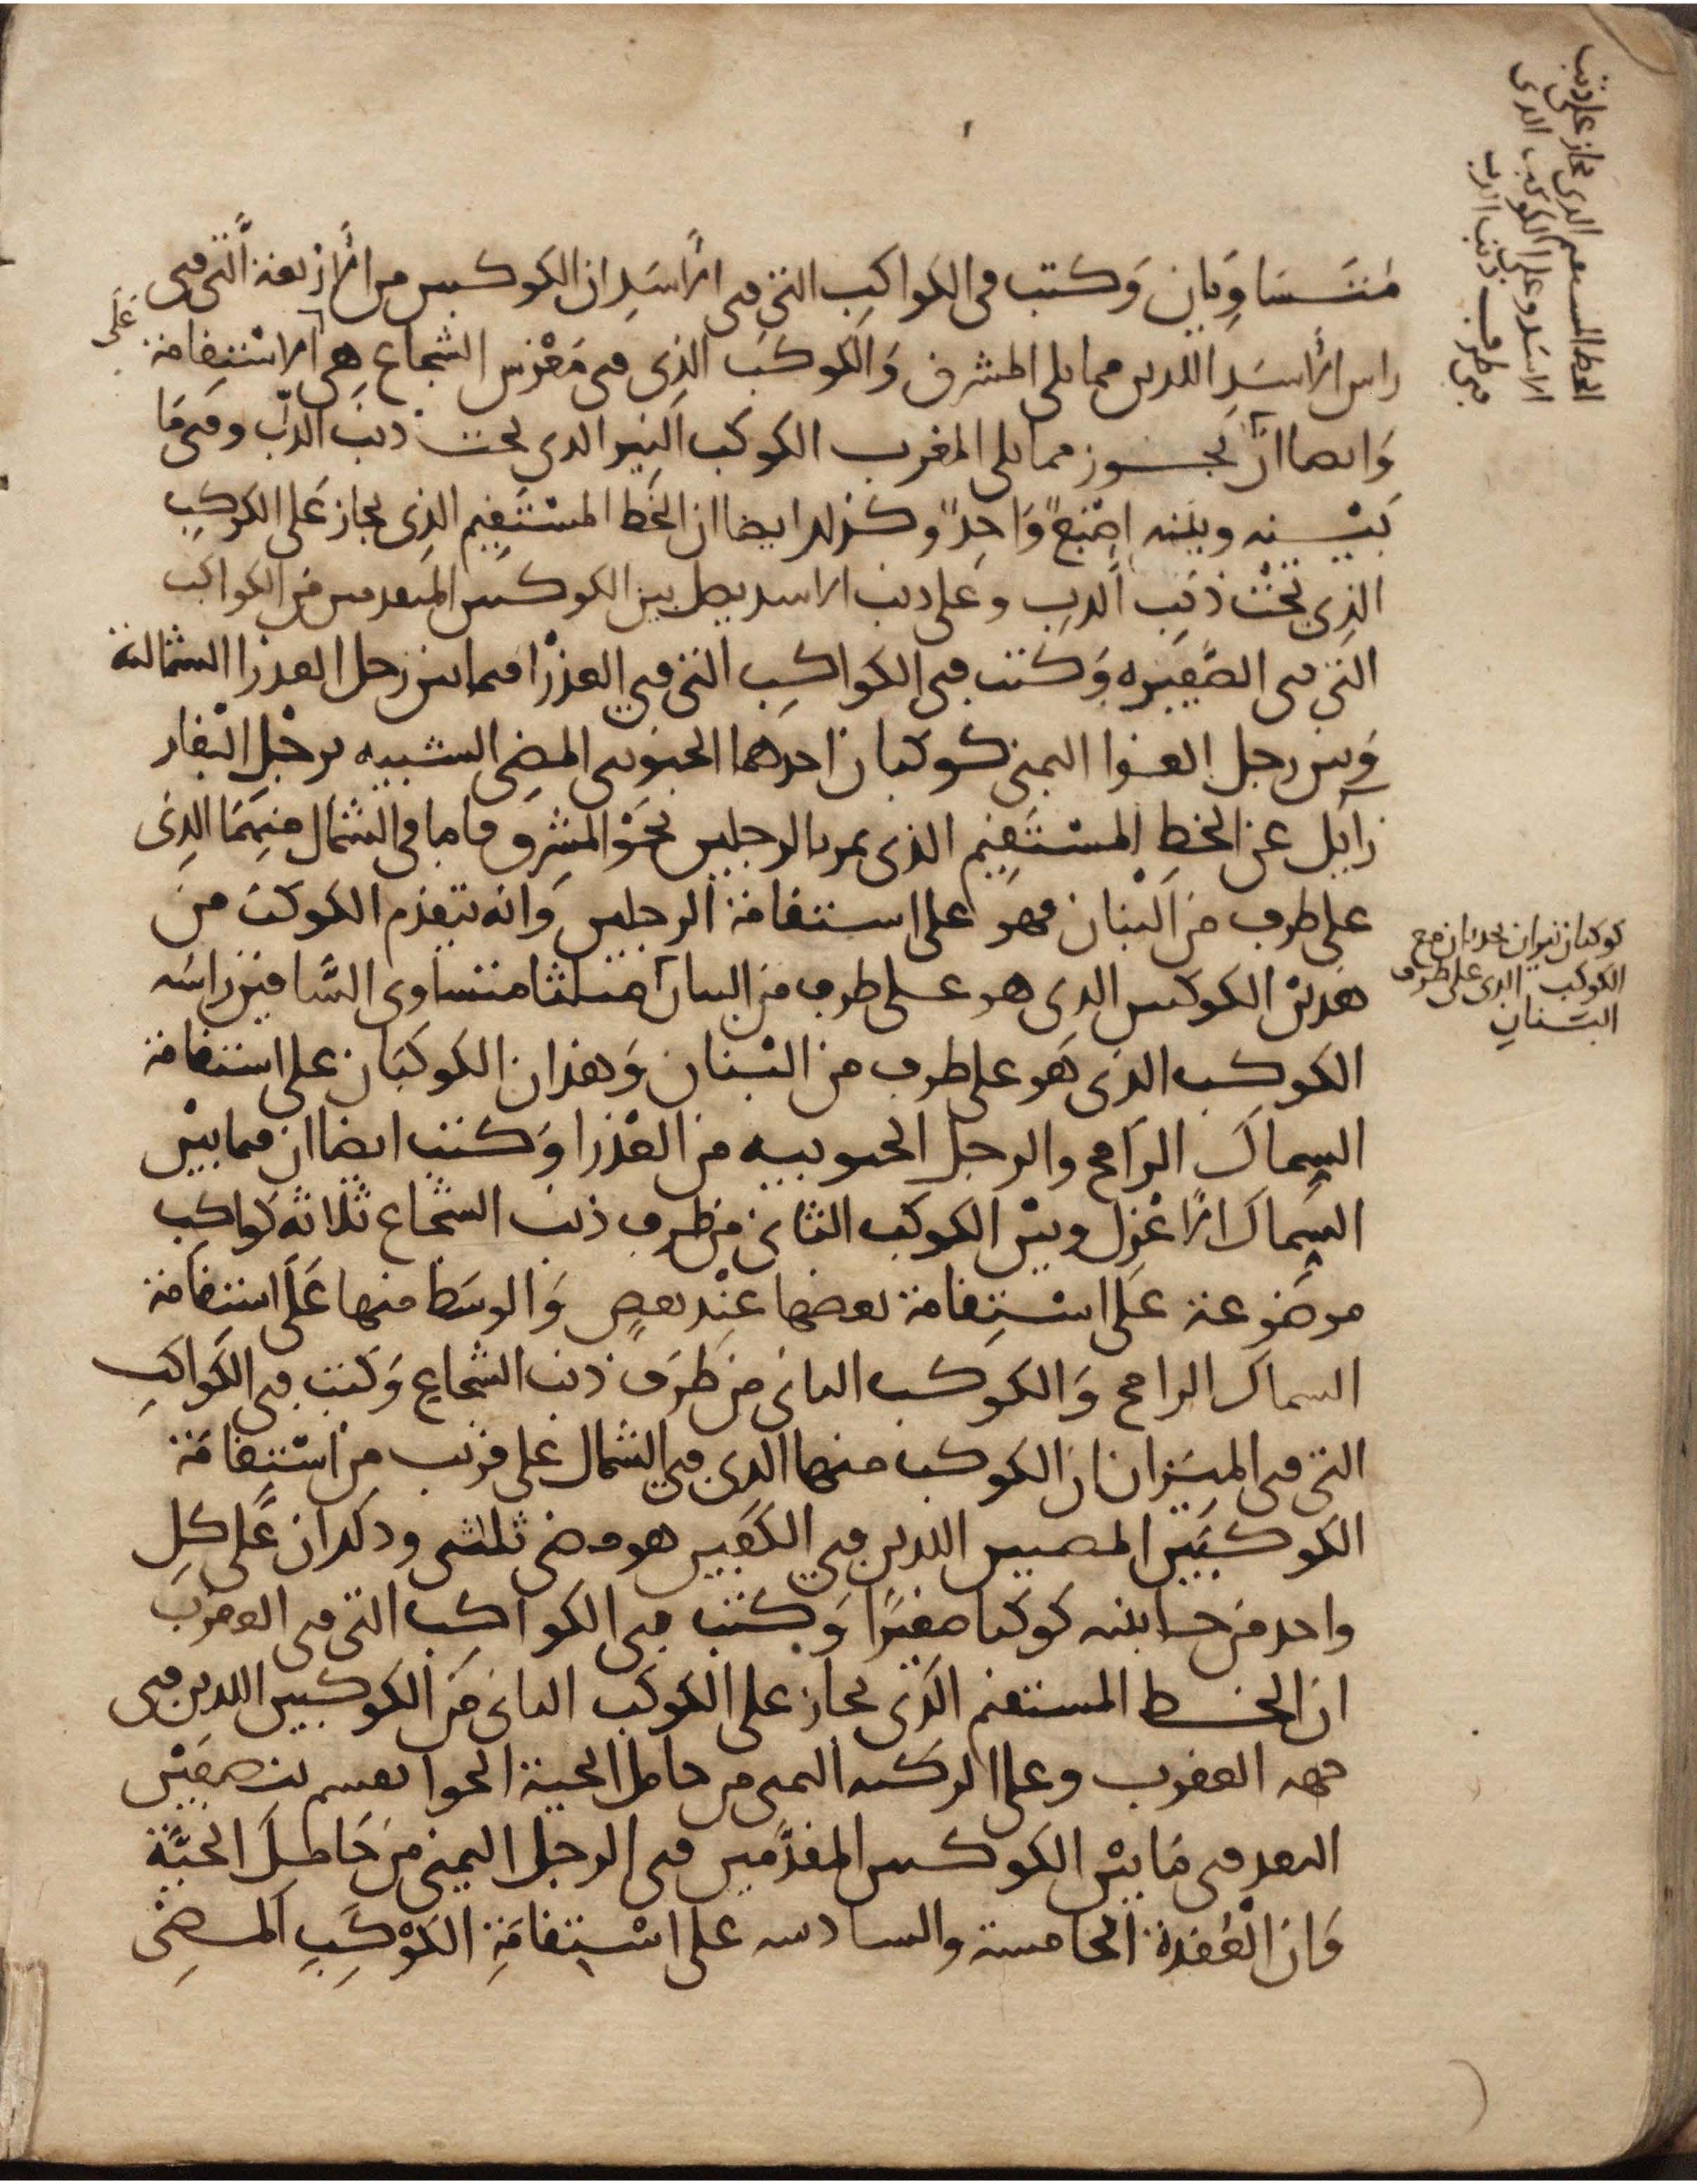 متساويان وكتب في الكواكب التي في الأسد ان الكوكبين من الأربعة التي في
راس الأسد اللذين مما يلي المشرق والكوكب الذي في مغرس الشجاع هي الاستقامة على
وايضا ان يجوز مما يلي المغرب الكوكب النير الذي تحت ذنب الدب وفي ما
بينه وبينه اصبع واحد وكذلك ايضا ان الخط المستقيم الذي يجاز على الكوكب
الذي تحت ذنب الدب وعلى ذنب الاسد يصل بين الكوكبين المتقدمين من الكواكب
التي في الصغيره وكتب في الكواكب التي في العذرا فيما بين رجل العذرا الشمالية
وبين رجل العذرا اليمنى كوكبان احدهما الجنوبي المضي الشبيه برجل البقار
زايل عن الخط المستقيم الذي يمر بالرجلين نحو المشرق فاما في الشمال منهما الذي
على طرف من البنان فهو على استقامة الرجلين وانه يتقدم الكوكب من
هذين الكوكبين الذي هو على طرف من البنان مثلثا متساوي الساقين راسه
الكوكب الذي هو على طرف من البنان وهذان الكوكبان على استقامة
السماك الرامح والرجل الجنوبيه من العذرا وكتب ايضا ان فيما بين
السماك الأعزل وبين الكوكب الثاني من طرف ذنب الشجاع ثلاثه كواكب
موضوعة على استقامة بعضها عند بعض والوسط منها على استقامة
السماك الرامح والكوكب الثاني من طرف ذنب الشجاع وكتب في الكواكب
التي في الميزان ان الكوكب منها الذي في الشمال على قرب من استقامة
الكوكبين المضيين اللذين في الكفين هو مضى ثلثى وذلك ان على كل
واحد من جانبيه كوكبا صغيرا وكتب في الكواكب التي في العقرب
ان الخط المستقيم الذي يجاز على الكوكب الثاني من الكوكبين اللذين في
حمه العقرب وعلى الركبه اليمنى من حامل الحية الحوا يقسم بنصفين
البعد في ما بين الكوكبين المقدمين في الرجل اليمنى من حامل الحية
وان العقدة الخامسة والسادسه على استقامة الكوكب المضي
الخط المستقيم الذي يجاز على ذنب
الاسد وعلى الكوكب الذي
في طرف ذنب الدب
كوكبان نيران يحدثان مع
الكوكب الذي على طرف
البنان